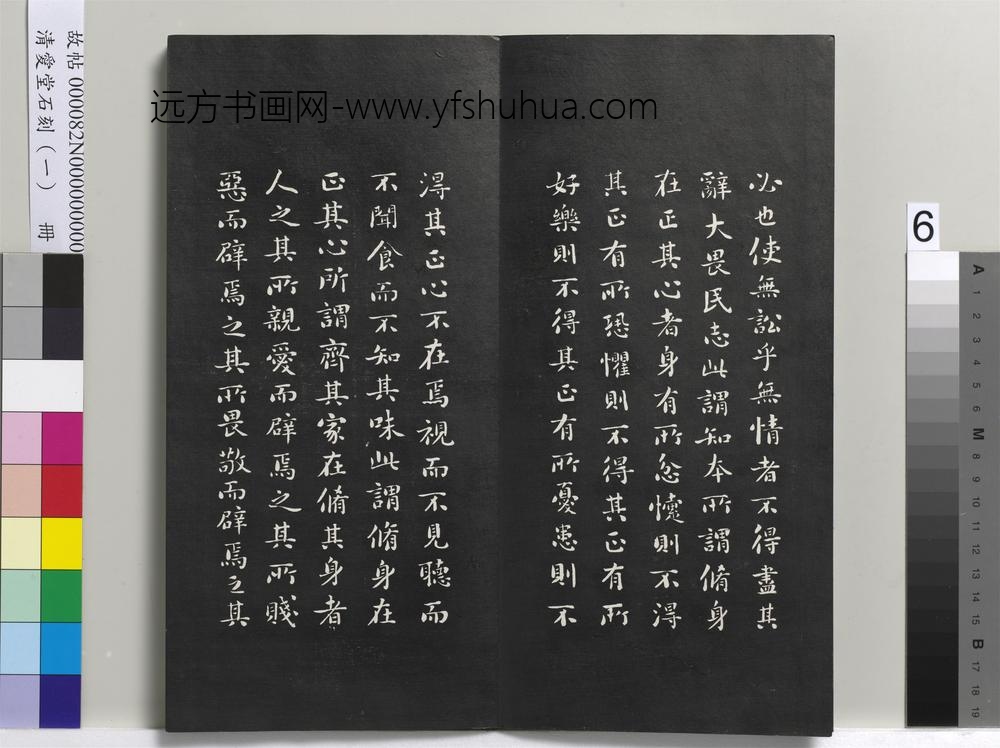 故帖 000082N000000000
清愛堂石刻(一) 冊
远方书画网-www.yfshuhua.com
必也使無訟乎無情者不得盡其
辭大畏民志此謂知本所謂脩身
在正其心者身有所忿懥則不淂
其正有所恐懼則不得其正有所
好樂則不得其正有所憂患則不
淂其正心不在焉視而不見聽而
不聞食而不知其味此謂脩身在
正其心所謂齊其家在脩其身者
人之其所親愛而辟焉之其所賤
惡而辟焉之其所畏敬而辟焉之其
6
A
1
2
3
4
5
6
M
8
9
10
11
12
13
14
15
B
17
18
19